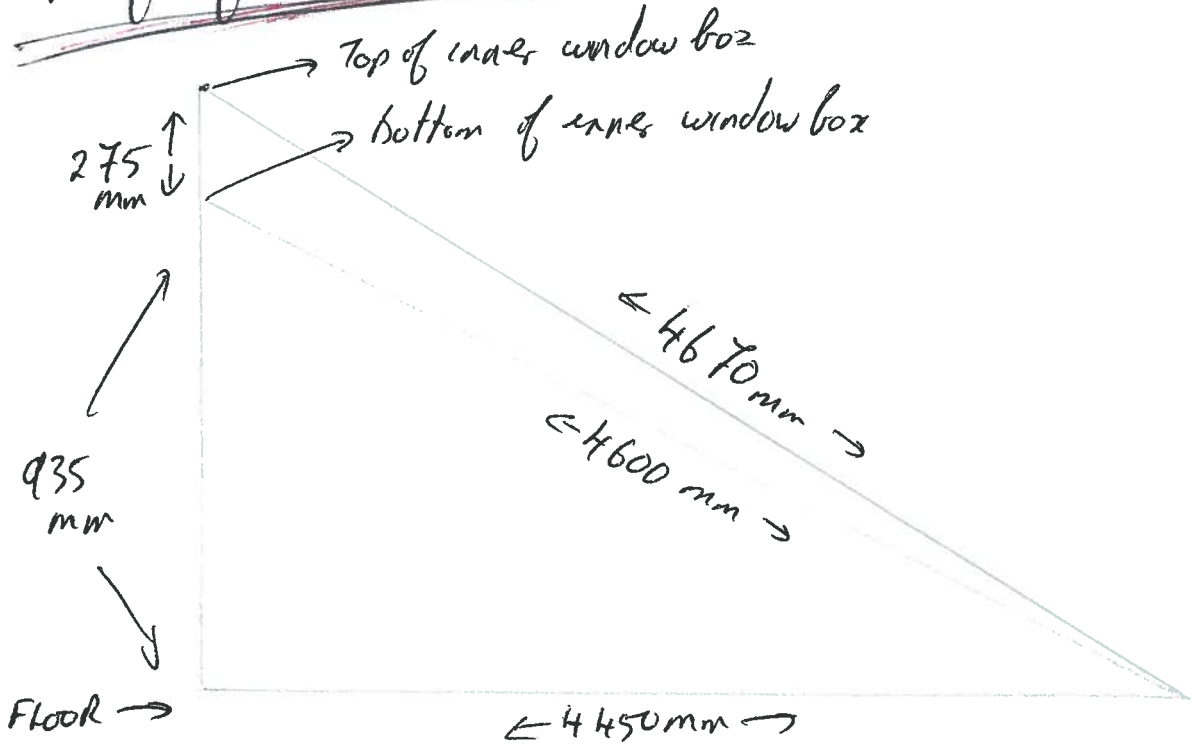 Top of inner window box
bottom of inner window box
275
mm
4670mm
4600 mm
935
mm
FLOOR
4450mm